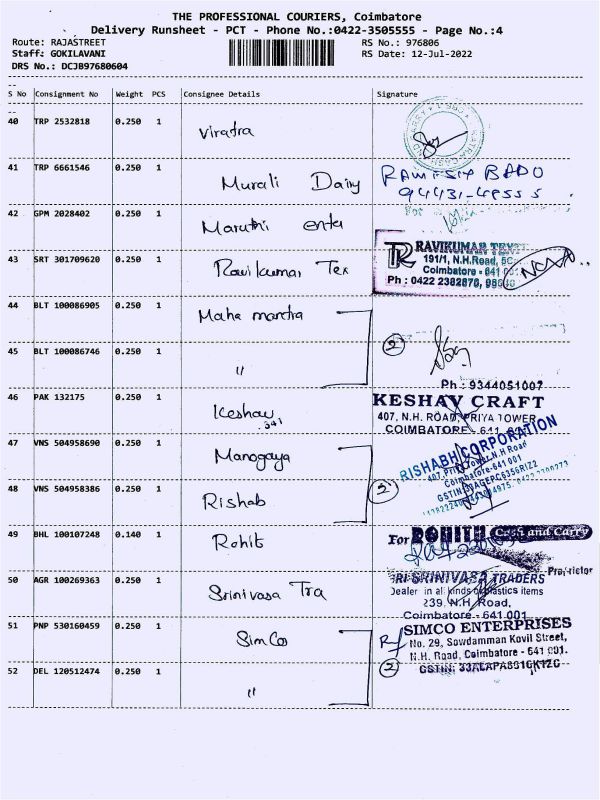 THE PROFESSIONAL COURIERS, Coimbatore
Delivery Runsheet - PCT - Phone No.:0422-3505555 - Page No.:4
Route: RAJASTREET RS No.: 976806
Staff: GOKILAVANI RS Date: 12-Jul-2022
DRS No.: DCJB97680604
S No Consignment No Weight PCS Consignee Details Signature
40 TRP 2532818 0.250 1 Viratra
41 TRP 6661546 0.250 1 Murali Dairy
RAMESH BABU
94431-48555
42 GPM 2028402 0.250 1 Maruthi enter
43 SRT 301709620 0.250 1 Ravikumar Tex
RAVIKUMAR
191/1, N.H.Road,
Coimbatore - 641 001
Ph : 0422 2382876,
44 BLT 100086905 0.250 1 Maha mantra
45 BLT 100086746 0.250 1 "
2
Ph : 9344051007
46 PAK 132175 0.250 1 Keshav
341
KESHAV CRAFT
407, N.H. ROAD, PRIYA TOWER
COIMBATORE - 641
47 VNS 504958690 0.250 1 Manogaya
RISHABH CORPORATION
407, Priya Tower, N.H Road
Coimbatore-641 001
48 VNS 504958386 0.250 1 Rishab
2
49 BHL 100107248 0.140 1 Rohit
For ROHITH Cash and Carry
Proprietor
50 AGR 100269363 0.250 1 Srinivasa Tra
SRI SRINIVASA TRADERS
Dealer in all kinds of plastics items
239, N.H. Road,
Coimbatore - 641 001
51 PNP 530160459 0.250 1 Simco
SIMCO ENTERPRISES
No. 29, Sowdamman Kovil Street,
N.H. Road, Coimbatore - 641 001.
52 DEL 120512474 0.250 1 "
2